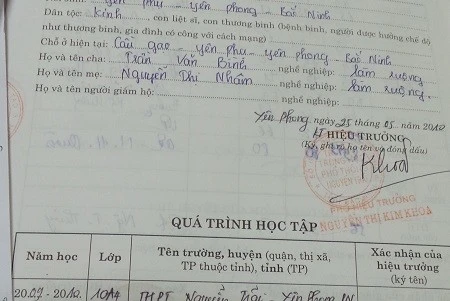 yên phụ - yên phong - Bắc Ninh
Dân tộc: kinh con liệt sĩ, con thương binh (bệnh binh, người được hưởng chế độ
như thương binh, gia đình có công với cách mạng)
Chỗ ở hiện tại: Cầu gạo - yên phụ - yên phong - Bắc Ninh
Họ và tên cha: Trần Văn Bình nghề nghiệp: làm ruộng
Họ và tên mẹ: Nguyễn Thị Nhâm nghề nghiệp: làm ruộng.
Họ và tên người giám hộ: nghề nghiệp:
Yên Phong, ngày 25 tháng 05 năm 2010
HIỆU TRƯỞNG
(Ký, ghi rõ họ tên và đóng dấu)
Khoa
PHÓ HIỆU TRƯỞNG
NGUYỄN THỊ KIM KHOA
QUÁ TRÌNH HỌC TẬP
Năm học Lớp Tên trường, huyện (quận, thị xã, TP thuộc tỉnh), tỉnh (TP) Xác nhận của hiệu trưởng (ký tên)
2009 - 2010 10A4 THPT Nguyễn Trãi - Yên Phong